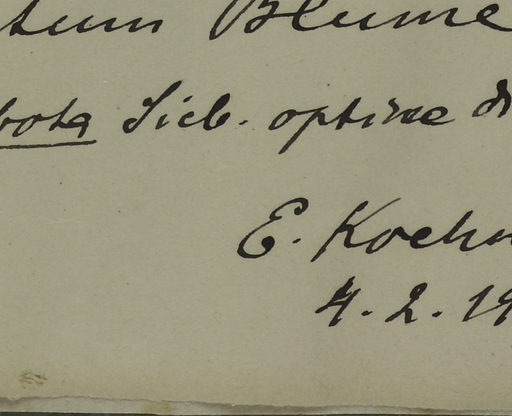 tum Blume
bota Sieb. optime di
E. Koehn
4. 2. 19